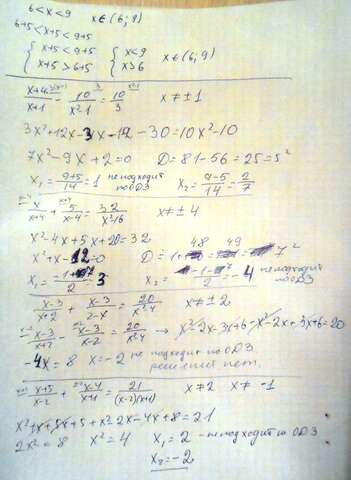 6<x<9 x∈(6;9)
6+5<x+5<9+5
{ x+5<9+5 { x<9 x∈(6;9)
{ x+5>6+5 { x>6
(x+4)/(x+1) - 10/(x²-1) = 10/3 x≠±1
3x²+12x-3x-12-30=10x²-10
7x²-9x+2=0 D=81-56=25=5²
x₁=(9+5)/14=1 не подходит по ОДЗ x₂=(9-5)/14=2/7
x/(x+4) + 5/(x-4) = 32/(x²-16) x≠±4
x²-4x+5x+20=32
x²+x-12=0 D=1+48=49=7²
x₁=(-1+7)/2=3 x₂=(-1-7)/2=-4 не подходит по ОДЗ
(x-3)/(x+2) + (x-3)/(2-x) = 20/(x²-4) x≠±2
(x-3)/(x+2) - (x-3)/(x-2) = 20/(x²-4) → x²-2x-3x+6-x²-2x+3x+6=20
-4x=8 x=-2 не подходит по ОДЗ
решений нет.
(x+5)/(x-2) + (x-4)/(x+1) = 21/((x-2)(x+1)) x≠2 x≠-1
x²+x+5x+5+x²-2x-4x+8=21
2x²=8 x²=4 x₁=2 - не подходит по ОДЗ
x₂=-2